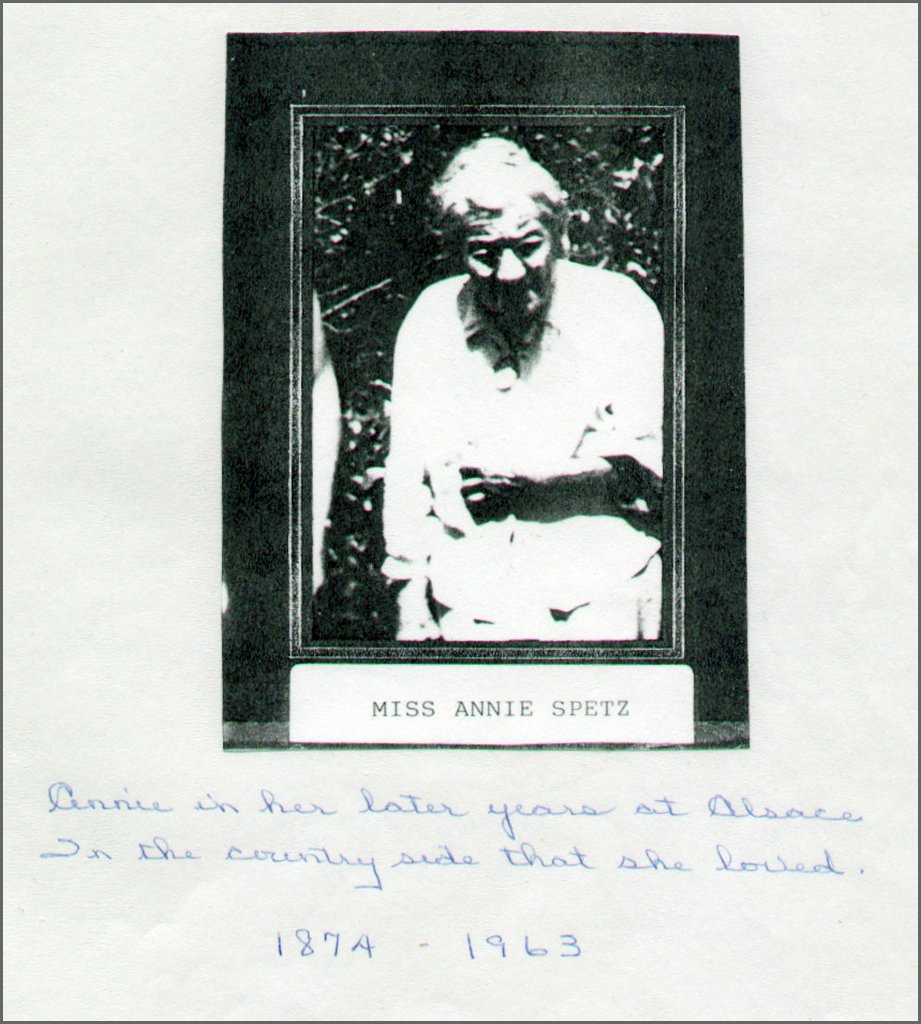 MISS ANNIE SPETZ
Annie in her later years at Alsace
In the country side that she loved.
1874 - 1963